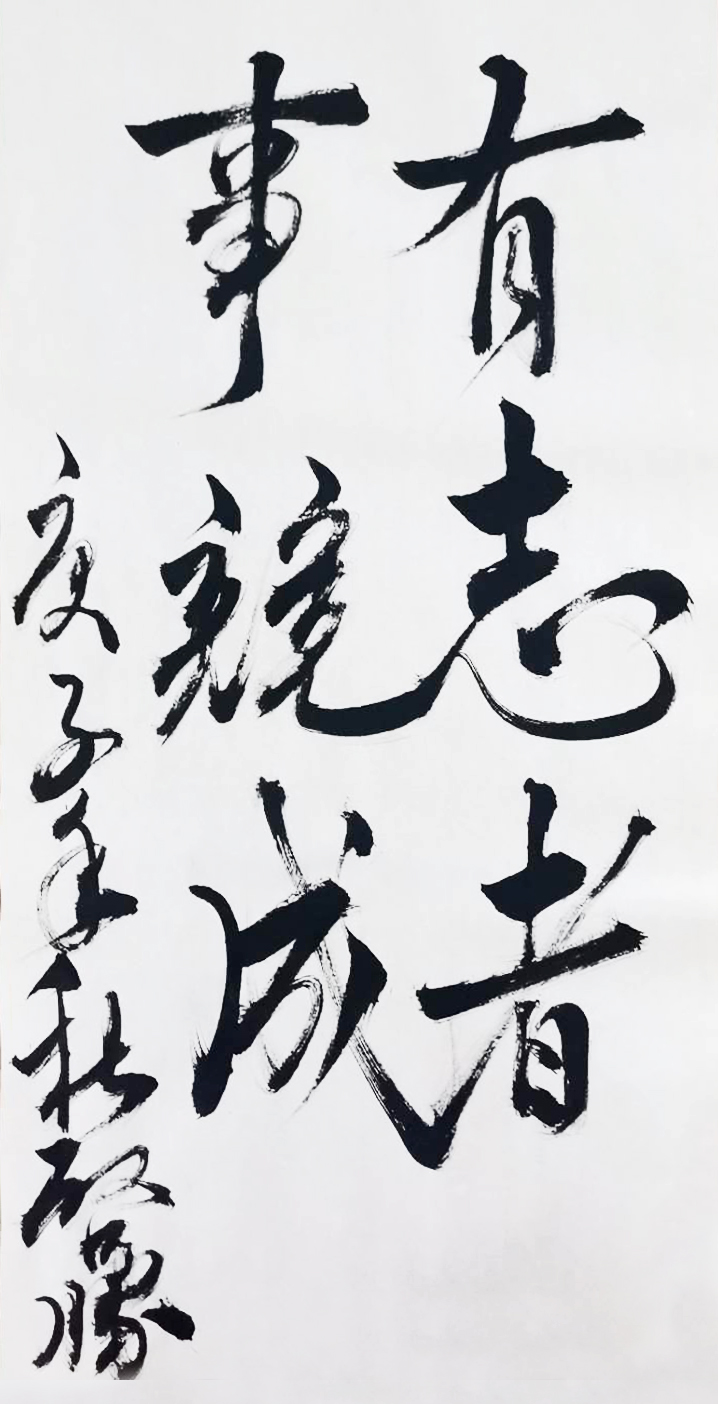 有志者
事競成
庚子年秋勝